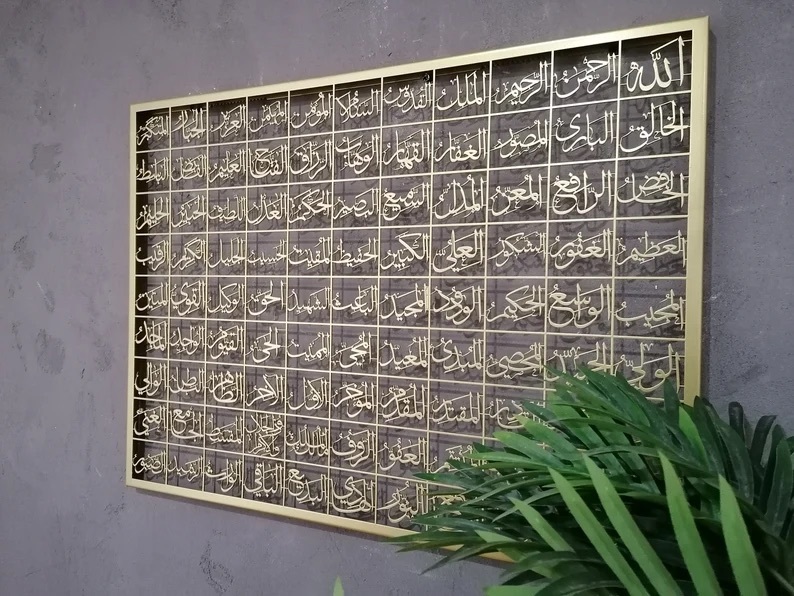 الله الرحمن الرحيم الملك القدوس السلام المؤمن المهيمن العزيز الجبار المتكبر
الخالق البارئ المصور الغفار القهار الوهاب الرزاق الفتاح العليم القابض الباسط
الخافض الرافع المعز المذل السميع البصير الحكم العدل اللطيف الخبير الحليم
العظيم الغفور الشكور العلي الكبير الحفيظ المقيت الحسيب الجليل الكريم الرقيب
المجيب الواسع الحكيم الودود المجيد الباعث الشهيد الحق الوكيل القوي المتين
الولي الحميد المحصي المبدئ المعيد المحيي المميت الحي القيوم الواجد الماجد
المقتدر المقدم المؤخر الاول الآخر الظاهر الباطن الوالي
العفو الرؤف مالك الملك ذو الجلال والاكرام المقسط الجامع الغني
النور الهادي البديع الباقي الوارث الرشيد الصبور